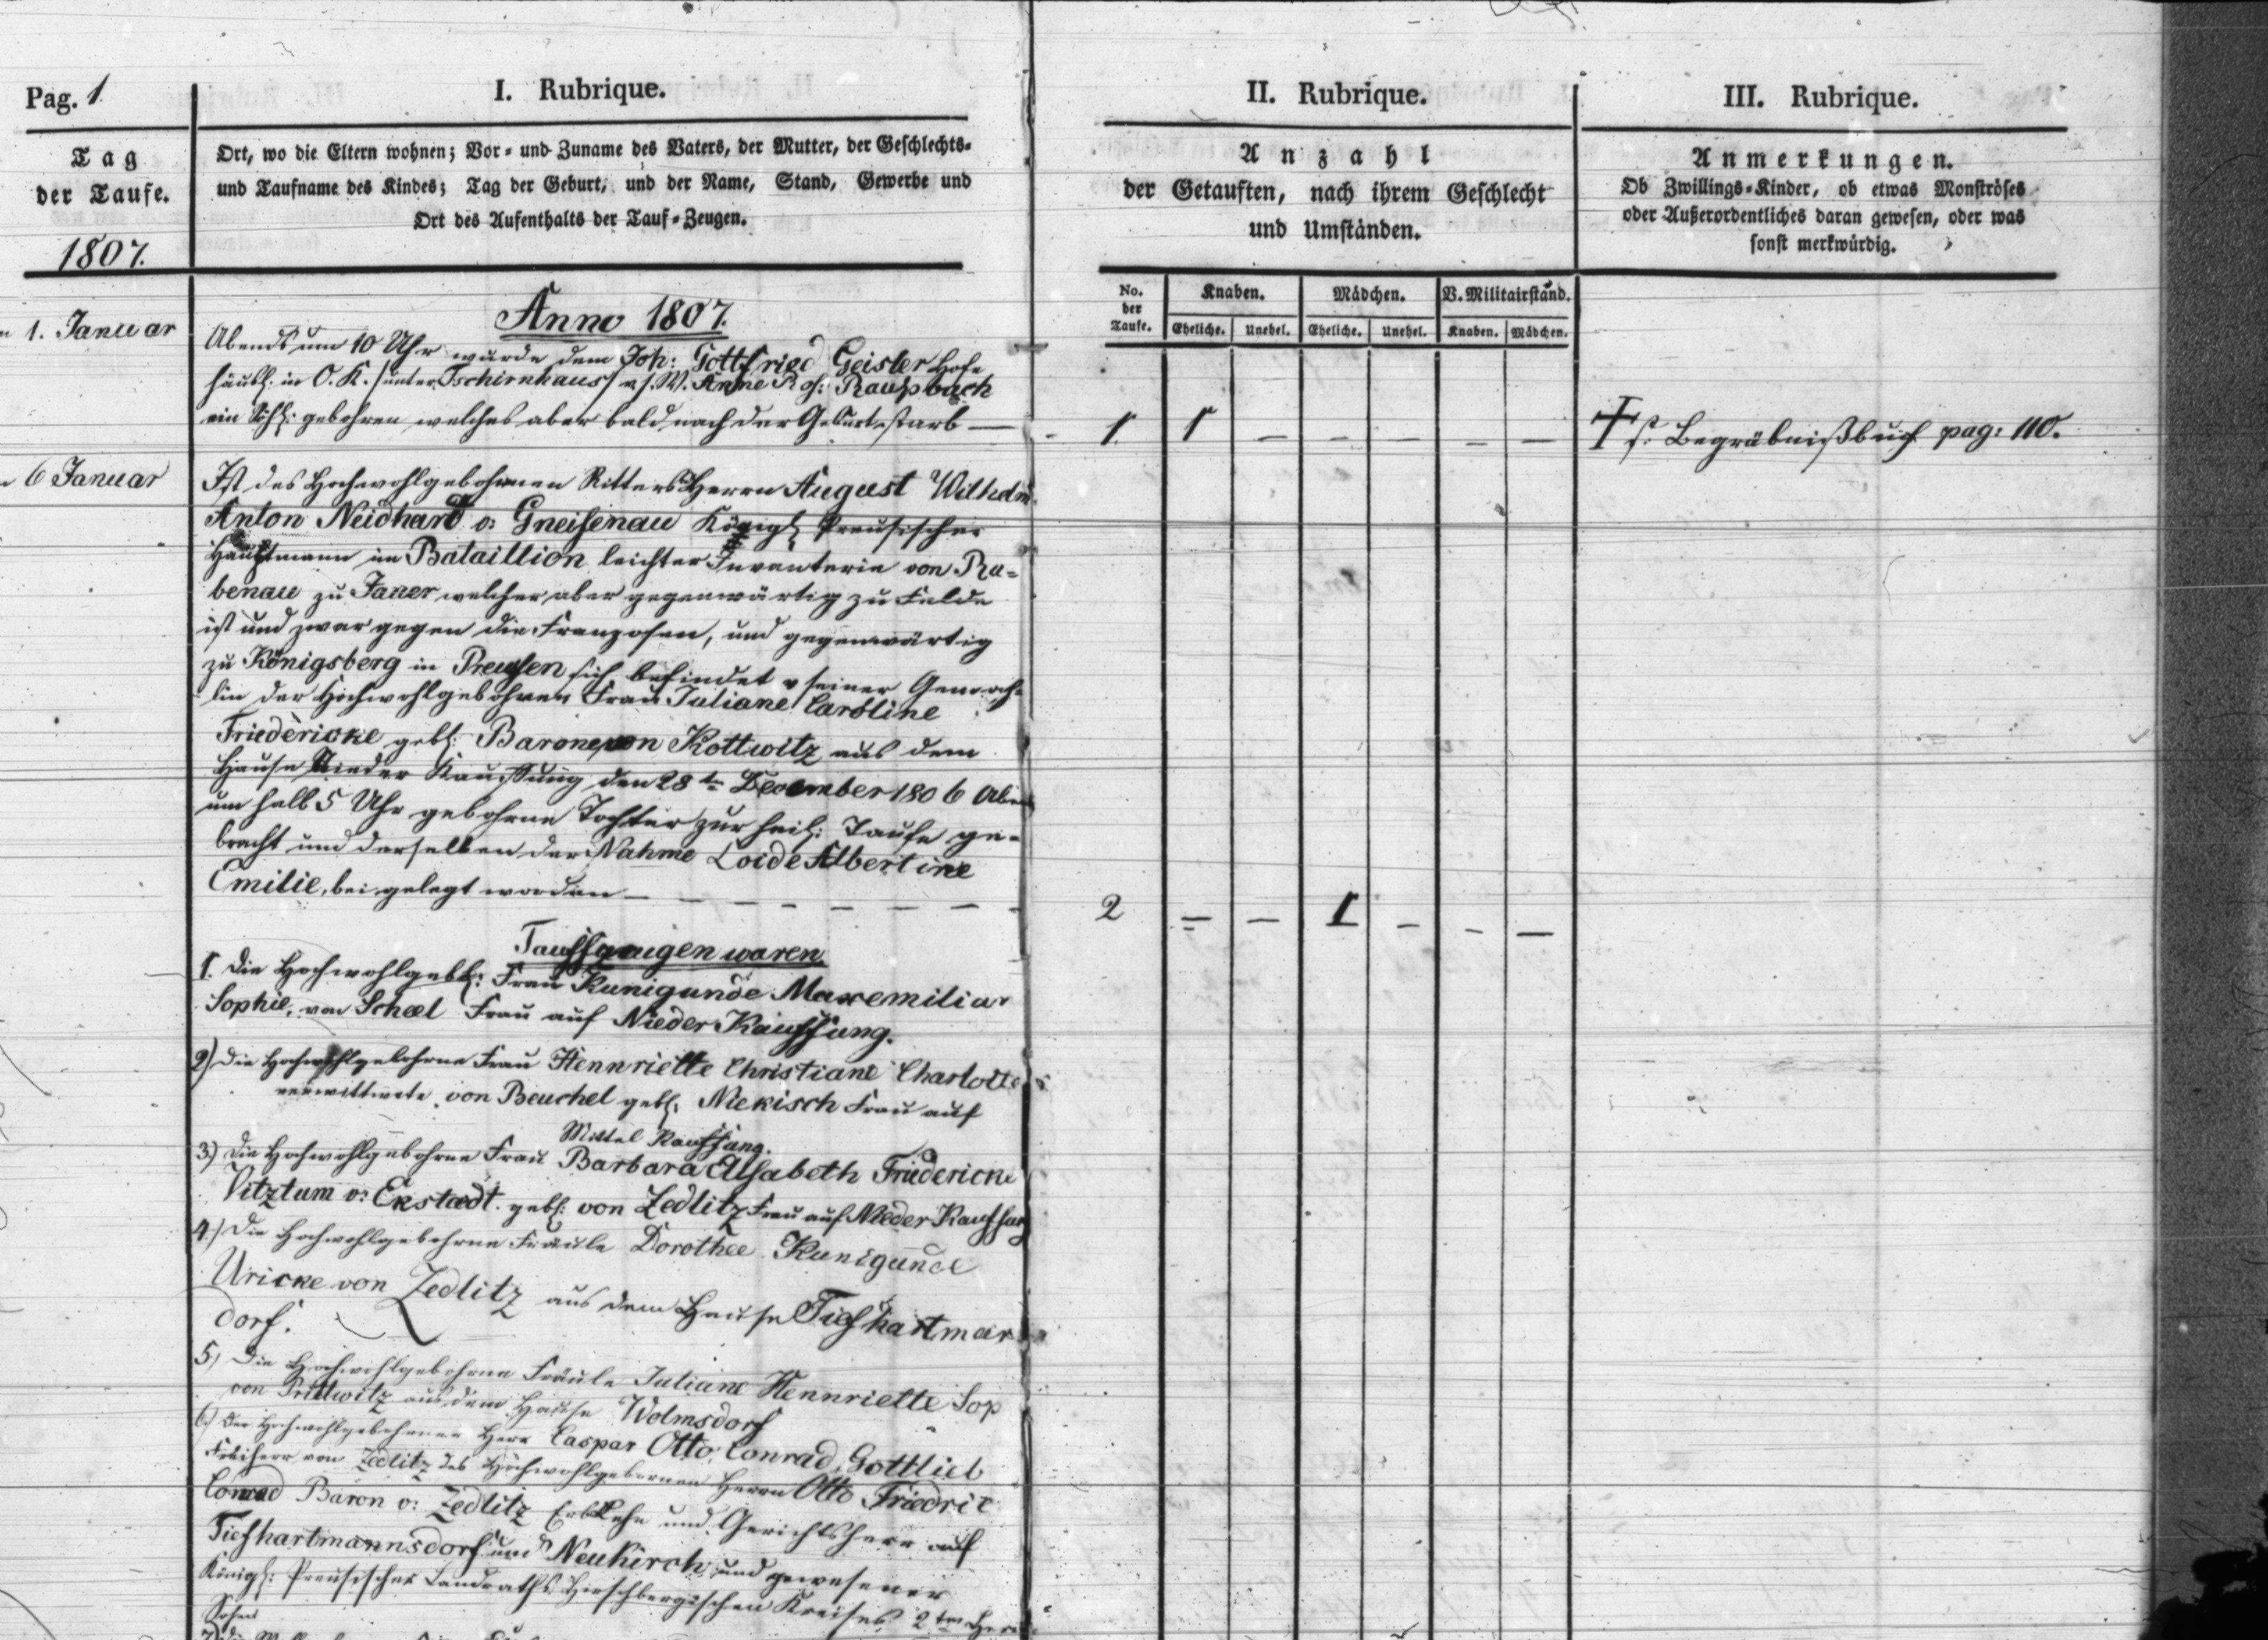 Pag. 1
I. Rubrique.
Tag
der Taufe.
1807.
Ort, wo die Eltern wohnen; Vor- und Zuname des Vaters, der Mutter, der Geschlechts-
und Taufname des Kindes; Tag der Geburt, und der Name, Stand, Gewerbe und
Ort des Aufenthalts der Tauf-Zeugen.
II. Rubrique.
Anzahl
der Getauften, nach ihrem Geschlecht
und Umständen.
III. Rubrique.
Anmerkungen.
Ob Zwillings-Kinder, ob etwas Monströses
oder Außerordentliches daran gewesen, oder was
sonst merkwürdig.
No. der Taufe.
Knaben. Mädchen. V. Militairstand.
Eheliche. Unehel. Eheliche. Unehel. Knaben. Mädchen.
Anno 1807.
1. Januar
Abends um 10 Uhr wurde dem Joh: Gottfried Geisler Hofe
häusl: in O. K. /unter Tschirnhaus/ v. s. W. Anne Ros: Raupbach
ein Söhl: gebohren, welches aber bald nach der Geburt starb
1. 1 – – – – –
† s. Begräbnißbuch pag: 110.
6 Januar
Ist des Hochwohlgebohrnen Ritters Herrn August Wilhelm
Anton Neidhard v: Gneisenau Königl Preusischer
Hauptmann im Bataillion leichter Invanterie von Ra=
benau zu Jauer welcher aber gegenwärtig zu Felde
ist und zwar gegen die Franzosen, und gegenwärtig
zu Königsberg in Preusen sich befindet v seiner Gemah=
lin der Hochwohlgebohren Frau Juliane Caroline
Friedericke gebh: Baronesse von Kottwitz aus dem
Hause Nieder Kauffung den 28ten December 1806 Aben
um halb 5 Uhr gebohrne Tochter zur heil: Taufe ge=
bracht und derselben der Nahme Loide Albertine
Emilie, bei gelegt worden – – – – – – – –
2 – – 1 – – –
Taufzeugen waren.
1. Die Hochwohlgebh: Frau Kunigunde Maxemilia
Sophie, von Scheel Frau auf Nieder Kauffung.
2) Die Hochwohlgebohrne Frau Hennriette Christiane Charlotte
verwittwete von Beuchel gebh: Niekisch Frau auf
Mittel Kauffung.
3) Die Hochwohlgebohrne Frau Barbara Elisabeth Friedericke
Vitztum v: Ekstædt gebh: von Zedlitz Frau auf Nieder Kauffung
4) Die Hochwohlgebohrne Fräule Dorothee Kunigunde
Uricke von Zedlitz aus dem Hause Tiefhartmar
dorf.
5) Die Hochwohlgebohrne Fräule Juliane Hennriette Sop
von Prittwitz aus dem Hause Wolmsdorf
6) Der Hochwohlgebohrne Herr Caspar Otto, Conrad, Gottlieb
Freiherr von Zedlitz des Hochwohlgebornen Herrn Otto Friedric
Conrad Baron v: Zedlitz Erb Lehn und Gerichtsherr auf
Tiefhartmannsdorf und Neukirch und gewesener
Königl: Preusischer Landraths Hirschbergischen Kreises 2ten Herr
Sohn